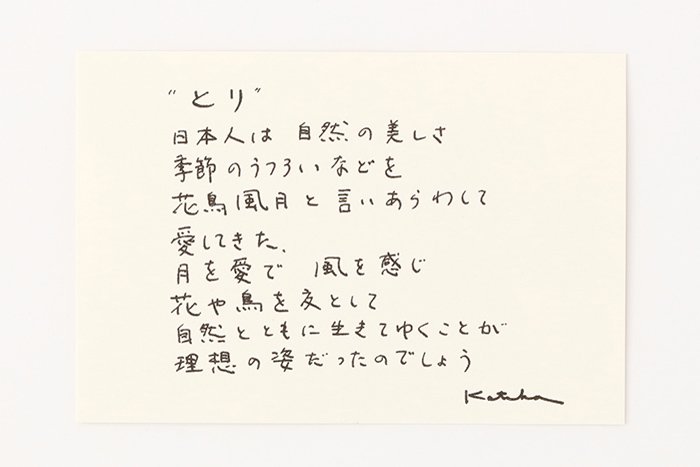 “とり”
日本人は 自然の美しさ
季節のうつろいなどを
花鳥風月と言いあらわして
愛してきた、
月を愛で 風を感じ
花や鳥を友として
自然とともに生きてゆくことが
理想の姿だったのでしょう